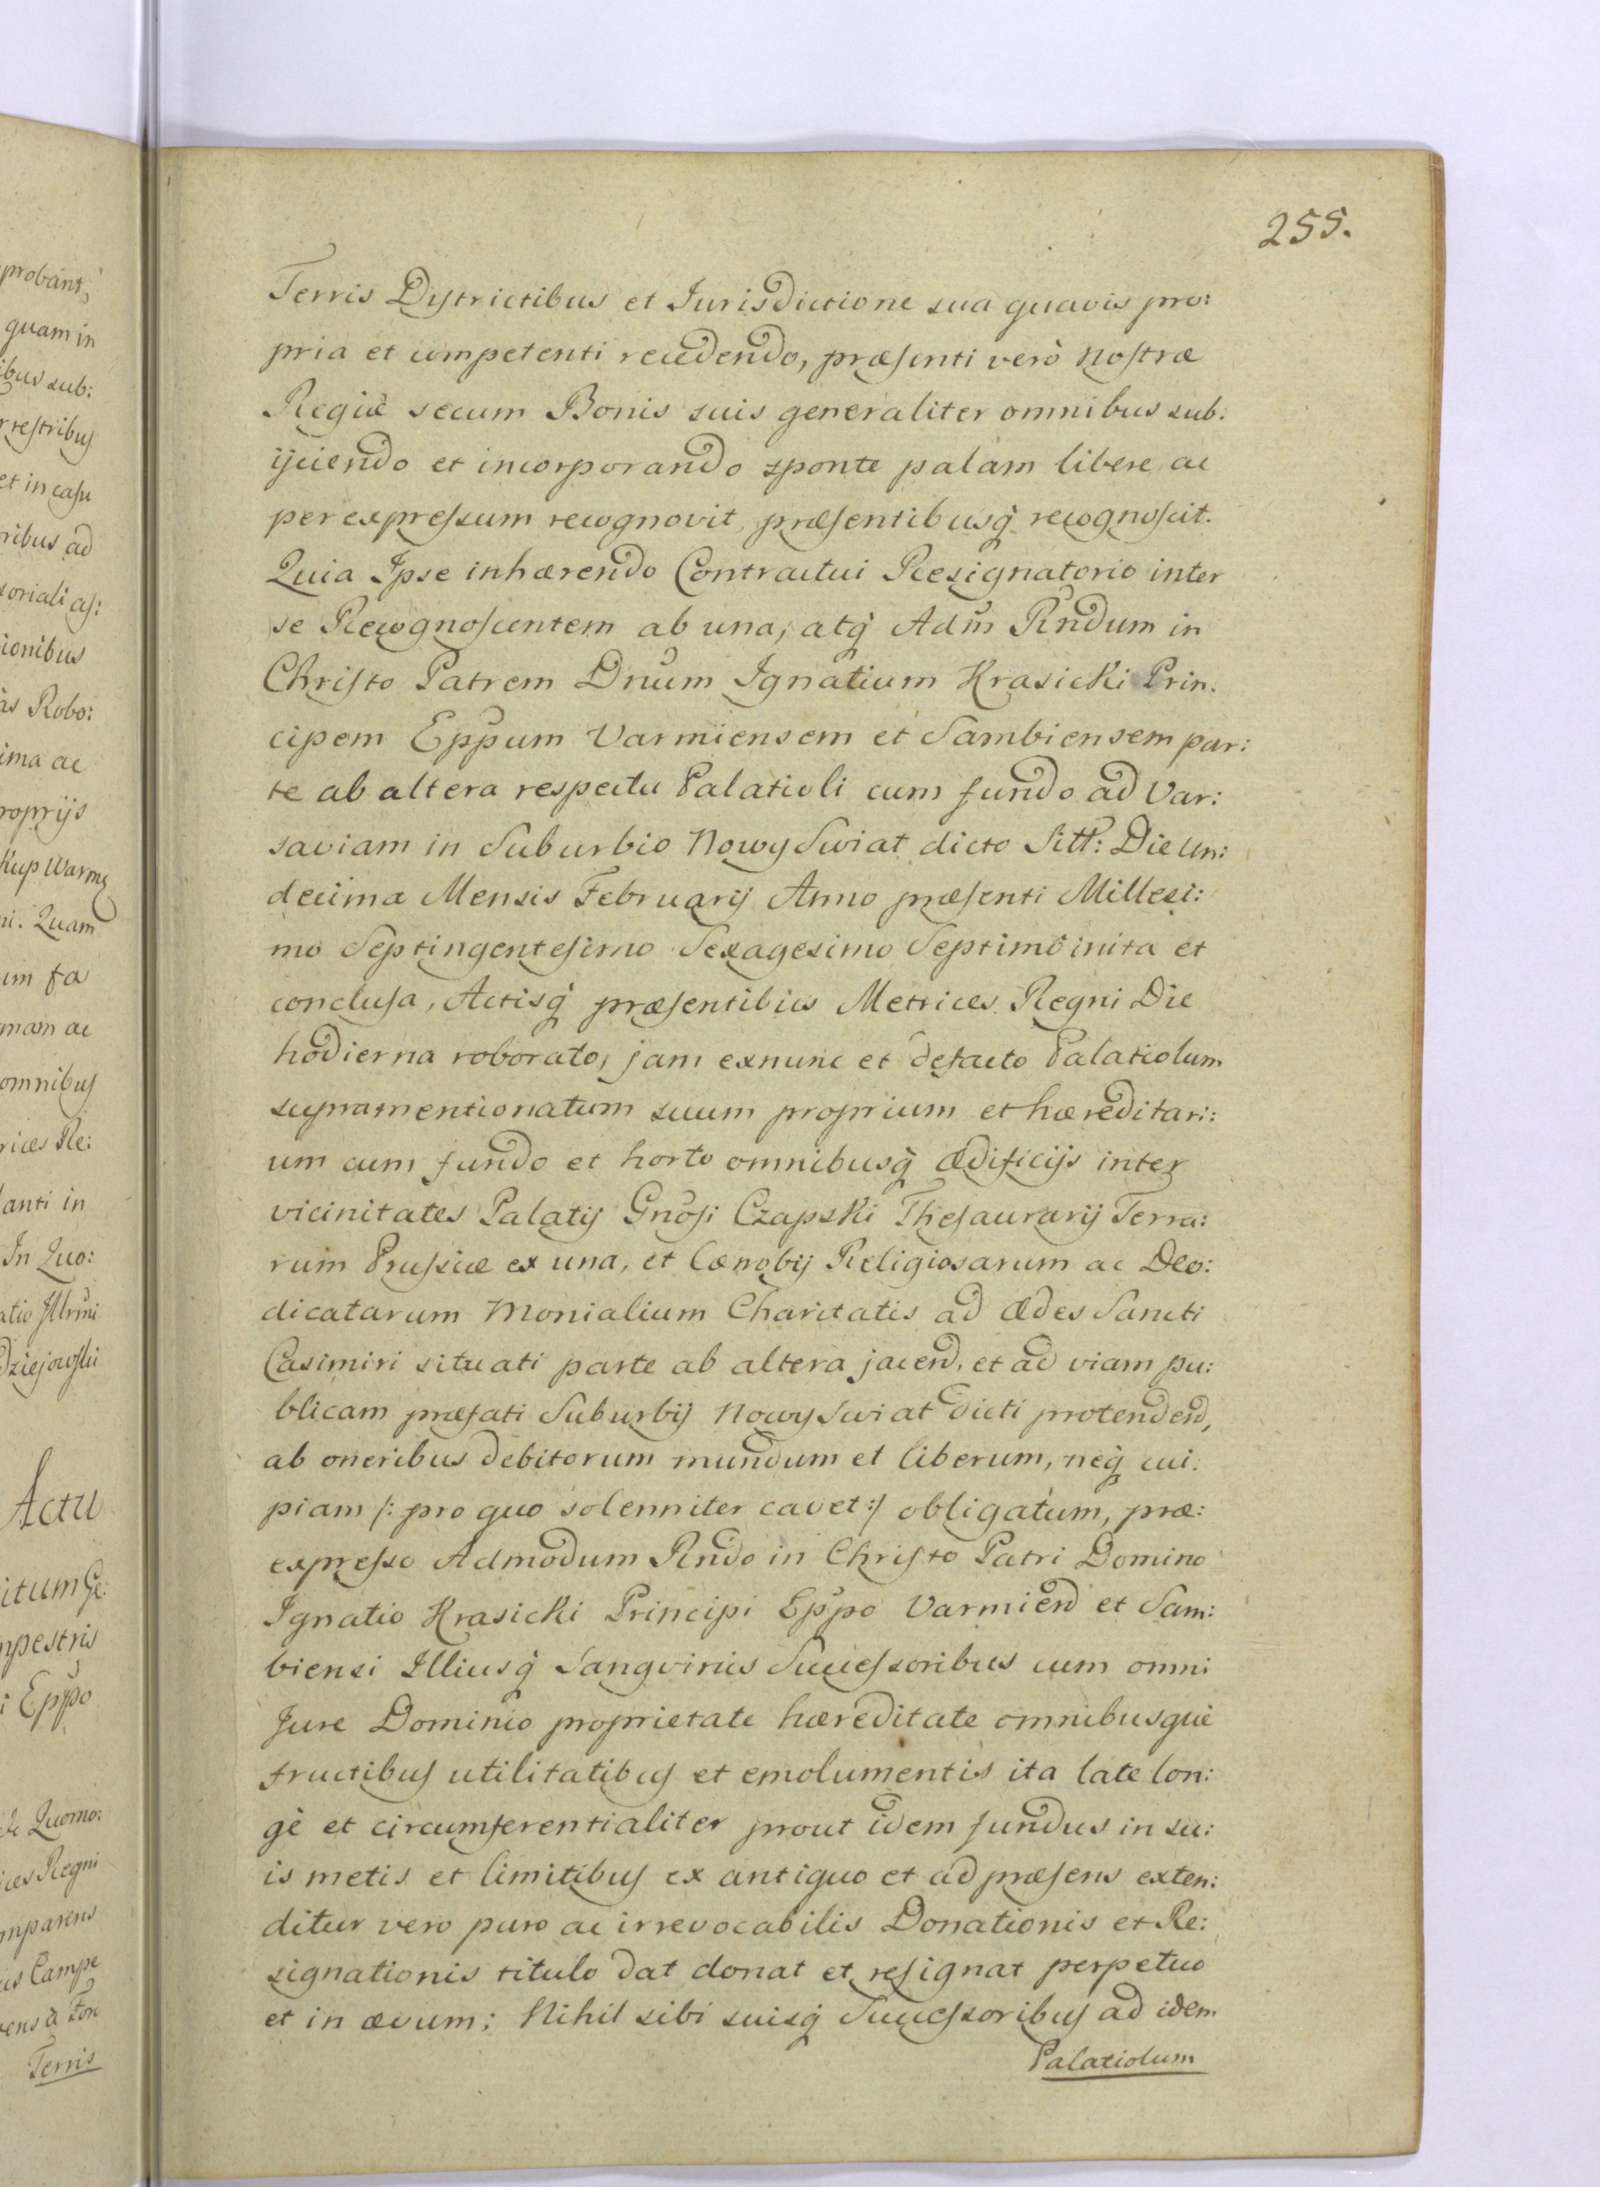 255.
Terris Dystrictibus et Jurisdictione sua quavis pro:
pria et competenti recedendo, præsenti verò Nostræ
Regiæ secum Bonis suis generaliter omnibus sub:
ijciendo et incorporando sponte palam libere ac
per expressum recognovit, præsentibusq̀ recognoscit.
Quia Ipse inhærendo Contractui Resignatorio inter
se Recognoscentem ab una, atq̀ Adm̃ Rñdum in
Christo Patrem Dnũm Ignatium Krasicki Prin:
cipem Epp̃um Varmiensem et Sambiensem par:
te ab altera respectu Palatioli cum fundo ad Var:
saviam in Suburbio Nowy Swiat dicto Sitt: Die Un:
decima Mensis Februarij Anno præsenti Millesi:
mo Septingentesimo Sexagesimo Septimo inita et
conclusa, Actisq̀ præsentibus Metrices Regni Die
hodierna roborato, jam exnunc et defacto Palatiolum
supramentionatum suum proprium et hæreditari:
um cum fundo et horto omnibusq̀ Ædificijs inter
vicinitates Palatij Gnõsi Czapski Thesaurarij Terra:
rum Prussiæ ex una, et Cænobij Religiosarum ac Deo:
dicatarum Monialium Charitatis ad Ædes Sancti
Casimiri situati parte ab altera jacend, et ad viam pu:
blicam præfati Suburbij Nowy Swiat dicti protendend,
ab oneribus debitorum mundum et liberum, neq̀ cui:
piam /: pro quo solenniter cavet :/ obligatum, præ:
expresso Admodum Rñdo in Christo Patri Domino
Ignatio Krasicki Principi Epp̃o Varmien̄ et Sam:
biensi Illiusq̀ Sangvinis Successoribus cum omni
Jure Dominio proprietate hæreditate omnibusque
fructibus utilitatibus et emolumentis ita late lon:
gè et circumferentialiter prout idem fundus in su:
is metis et limitibus ex antiquo et ad præsens exten:
ditur vero puro ac irrevocabilis Donationis et Re:
signationis titulo dat donat et resignat perpetuo
et in ævum; Nihil sibi suisq̀ Successoribus ad idem
Palatiolum
probant,
quam in
ibus sub:
rrestribus
et in casu
ribus ad
soriali as:
ionibus
as Robo:
ima ac
roprijs
ni. Quam
um fa
mam ac
omnibus
rices Re:
lanti in
In Quo:
atio Illrmi
dziejowski
Actu
itum Ge:
mpestris
i Epp̃o
Quomo:
ices Regni
mparens
us Campe
Terris